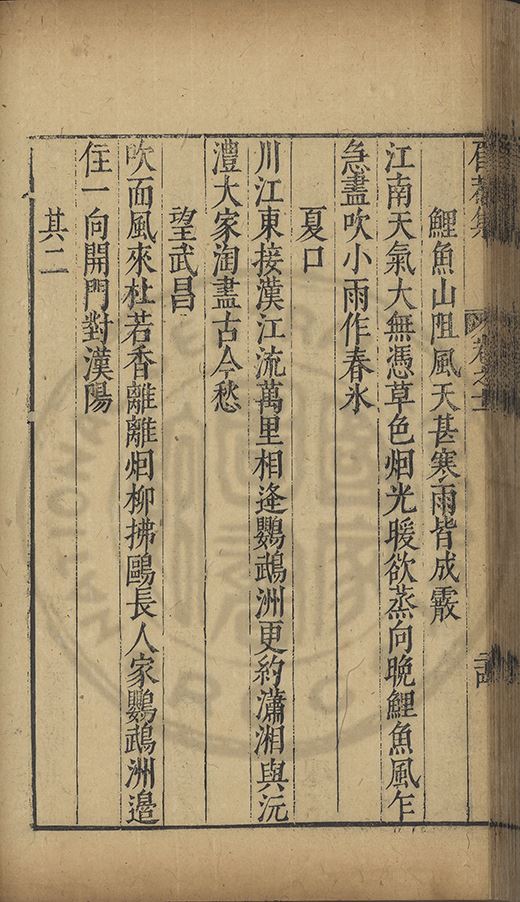 鯉魚山阻風天甚寒雨皆成霰
江南天氣大無憑草色烟光暖欲蒸向晚鯉魚風乍
急盡吹小雨作春氷
夏口
川江東接漢江流萬里相逢鸚鵡洲更約瀟湘與沅
澧大家淘盡古今愁
望武昌
吹面風來杜若香離離烟柳拂鷗長人家鸚鵡洲邉
住一向開門對漢陽
其二